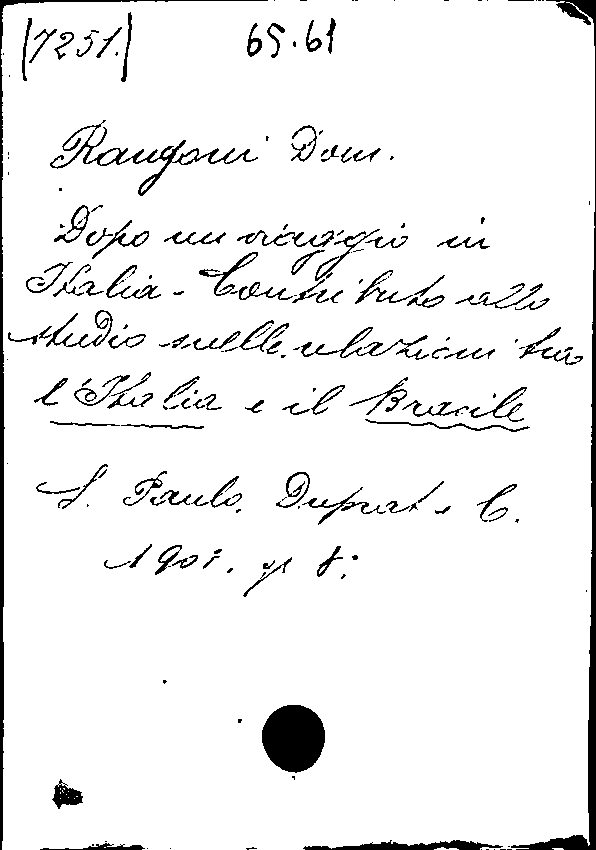 (7251.) 65.61
Rangoni Dom.
Dopo un viaggio in
Italia - Contributo allo
studio sulle relazioni tra
l'Italia e il Bracile
S. Paulo. Duprat e C.
gr 8: